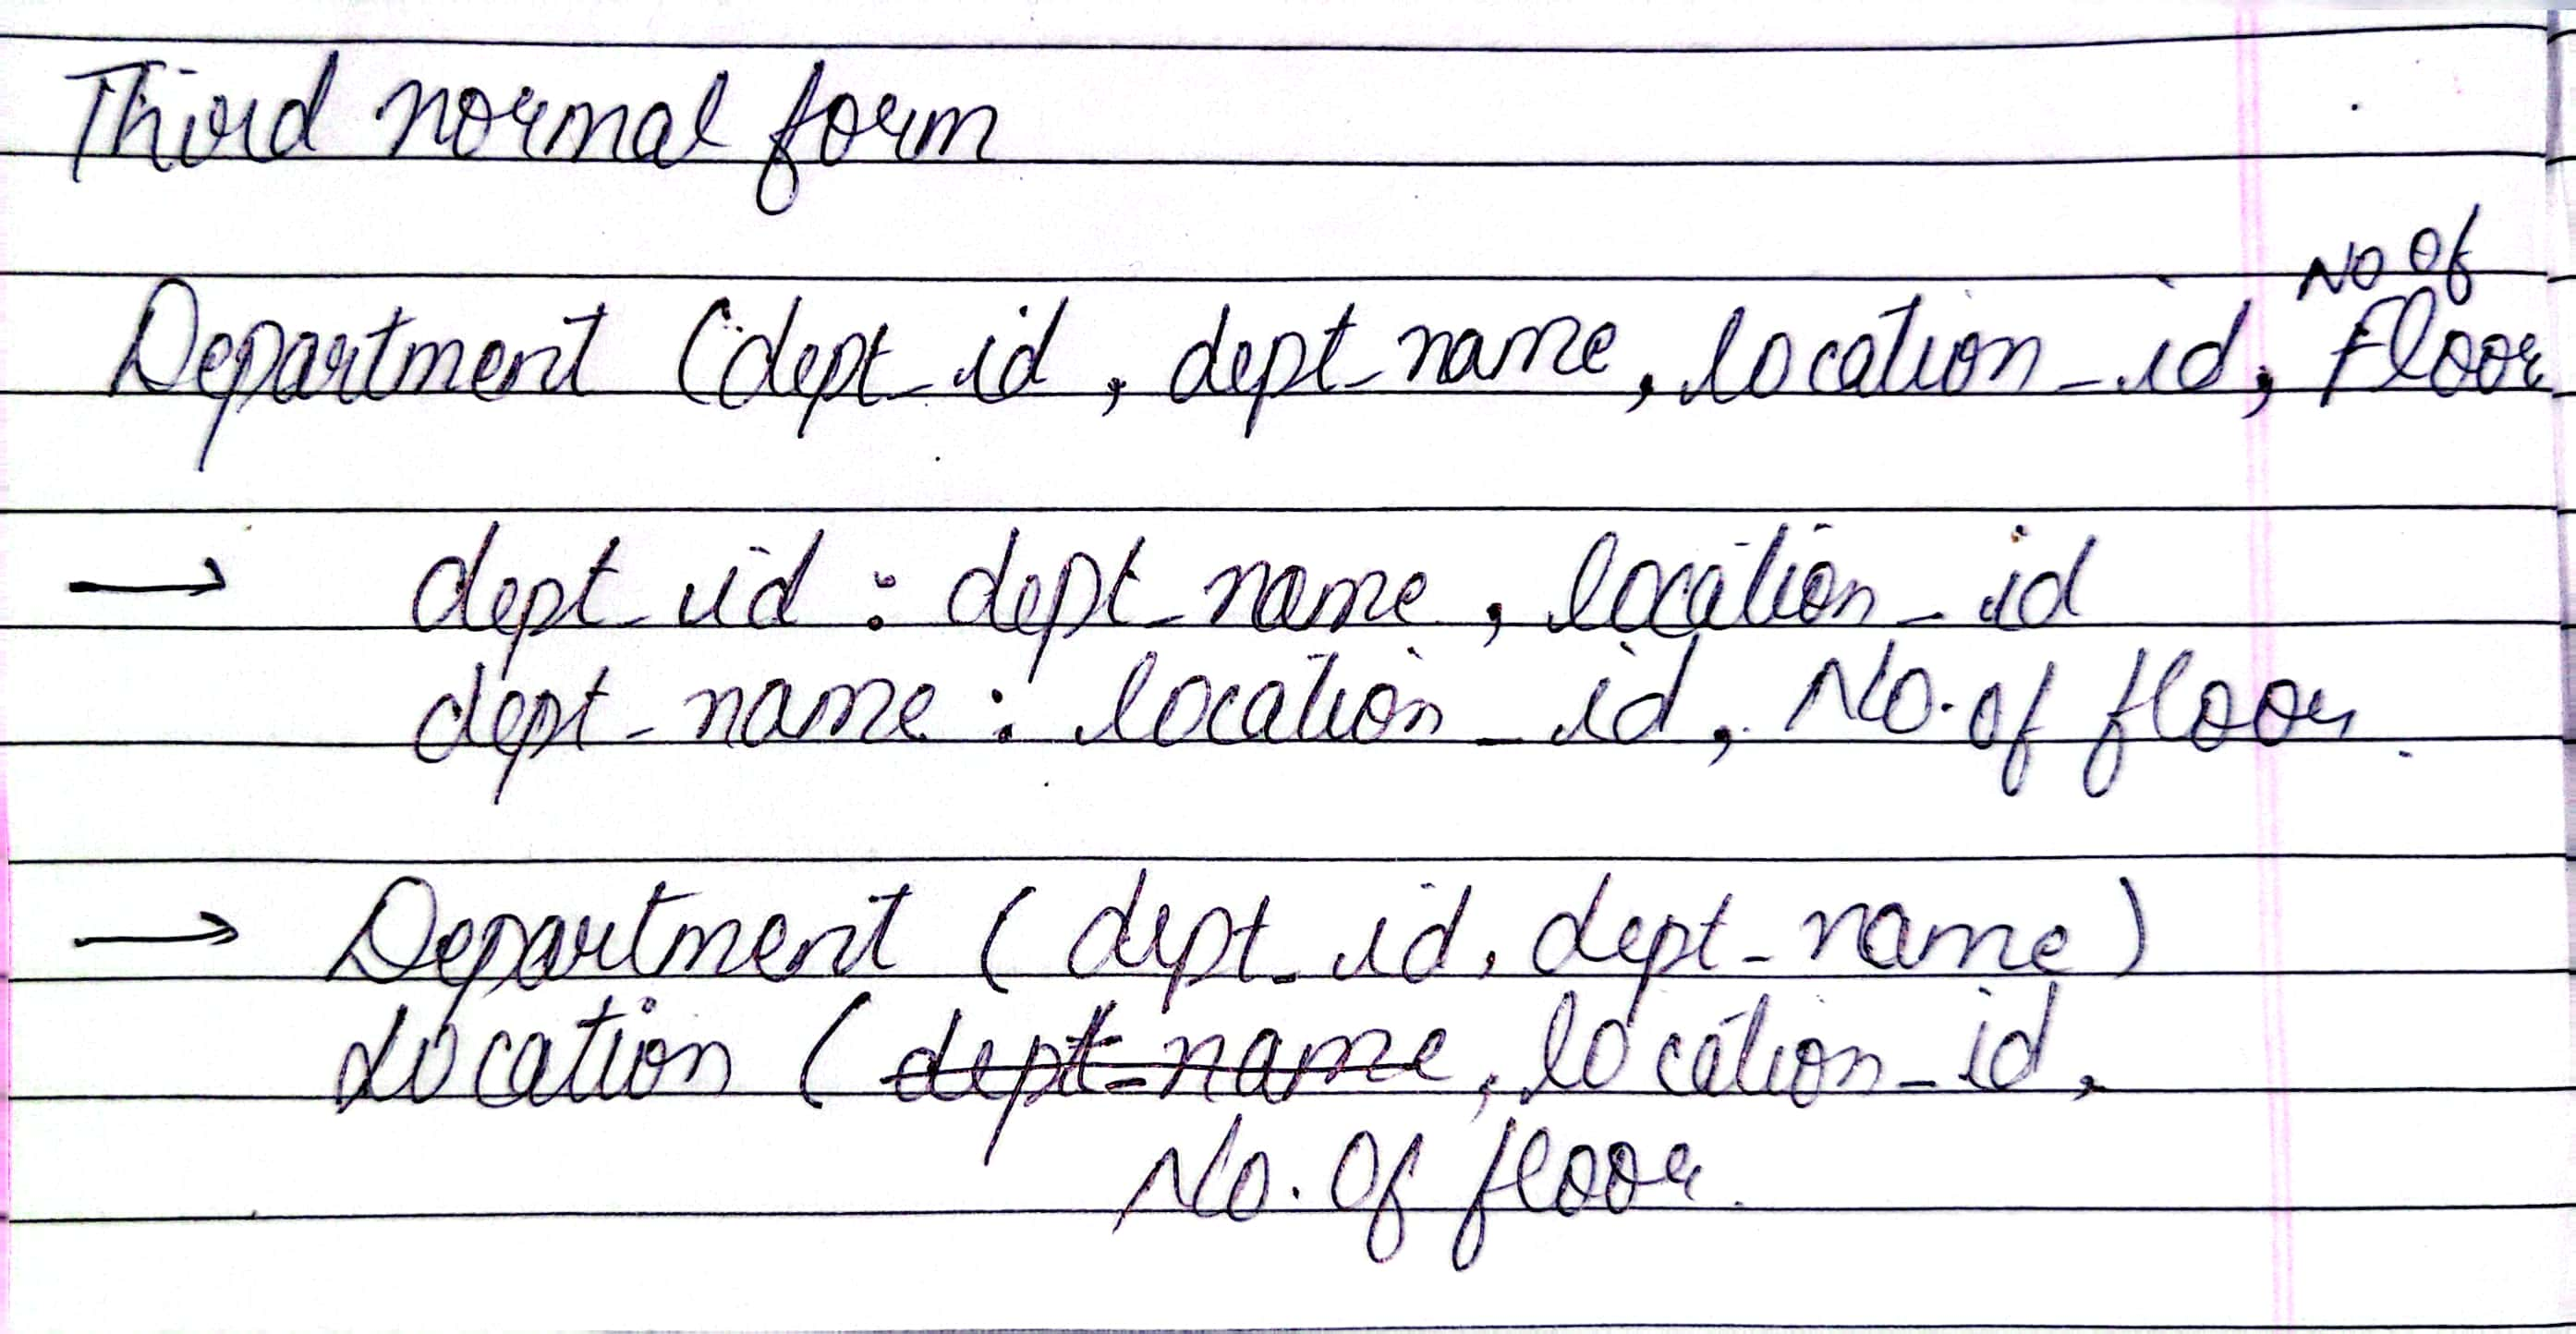 Third normal form
No of
Department (dept_id, dept_name, location_id, Floor
→ dept_id : dept_name, location_id
dept_name : location_id, No. of floor.
→ Department (dept_id, dept_name)
Location (dept_name, location_id,
No. Of floor.